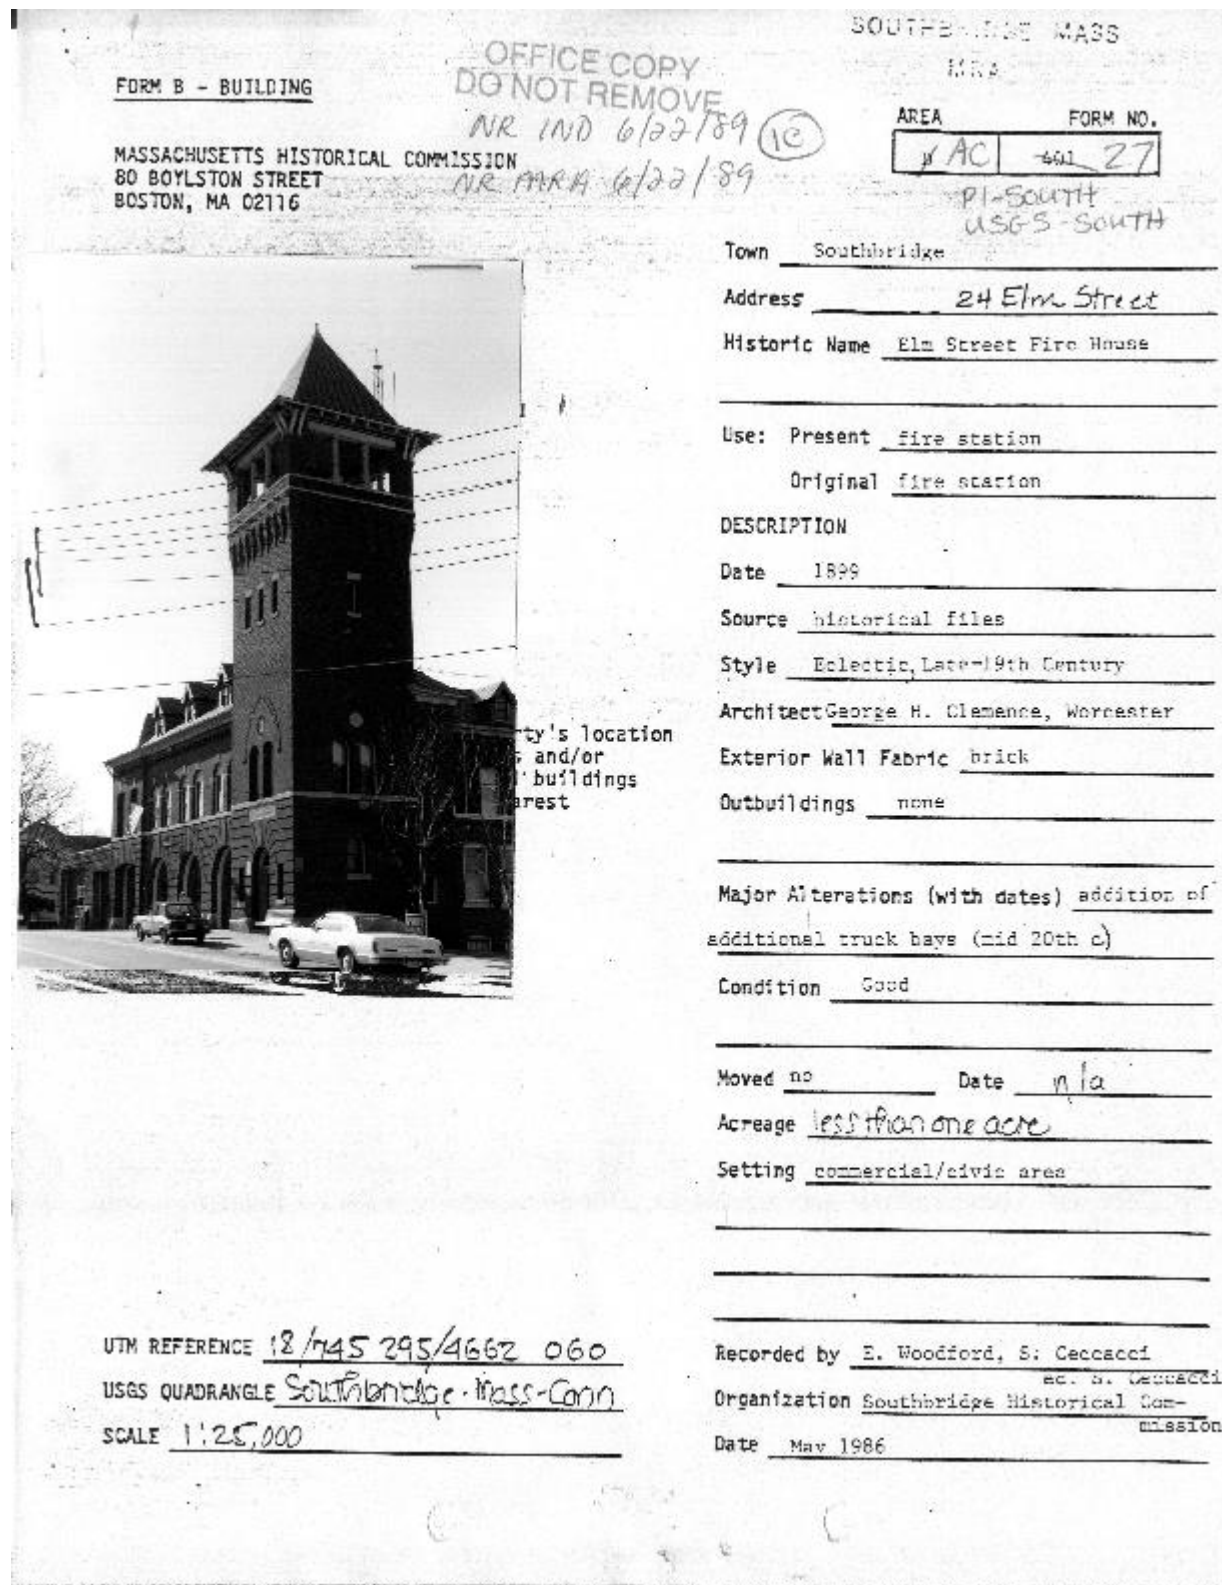 SOUTHBRIDGE MASS
MRA
OFFICE COPY
DO NOT REMOVE
FORM B - BUILDING
NR IND 6/22/89 (1C)
MASSACHUSETTS HISTORICAL COMMISSION
80 BOYLSTON STREET
BOSTON, MA 02116
NR MRA 6/22/89
AREA FORM NO.
AC 601 27
PI-SOUTH
USGS-SOUTH
Town Southbridge
Address 24 Elm Street
Historic Name Elm Street Fire House
Use: Present fire station
Original fire station
DESCRIPTION
Date 1899
Source historical files
Style Eclectic, Late-19th Century
Architect George H. Clemence, Worcester
Exterior Wall Fabric brick
Outbuildings none
rty's location
and/or
buildings
arest
Major Alterations (with dates) addition of
additional truck bays (mid 20th c)
Condition Good
Moved no Date n/a
Acreage less than one acre
Setting commercial/civic area
UTM REFERENCE 18/745 295/4662 060
USGS QUADRANGLE Southbridge-Mass-Conn
SCALE 1:25,000
Recorded by E. Woodford, S. Ceccacci
ed. S. Ceccacci
Organization Southbridge Historical Com-
mission
Date May 1986